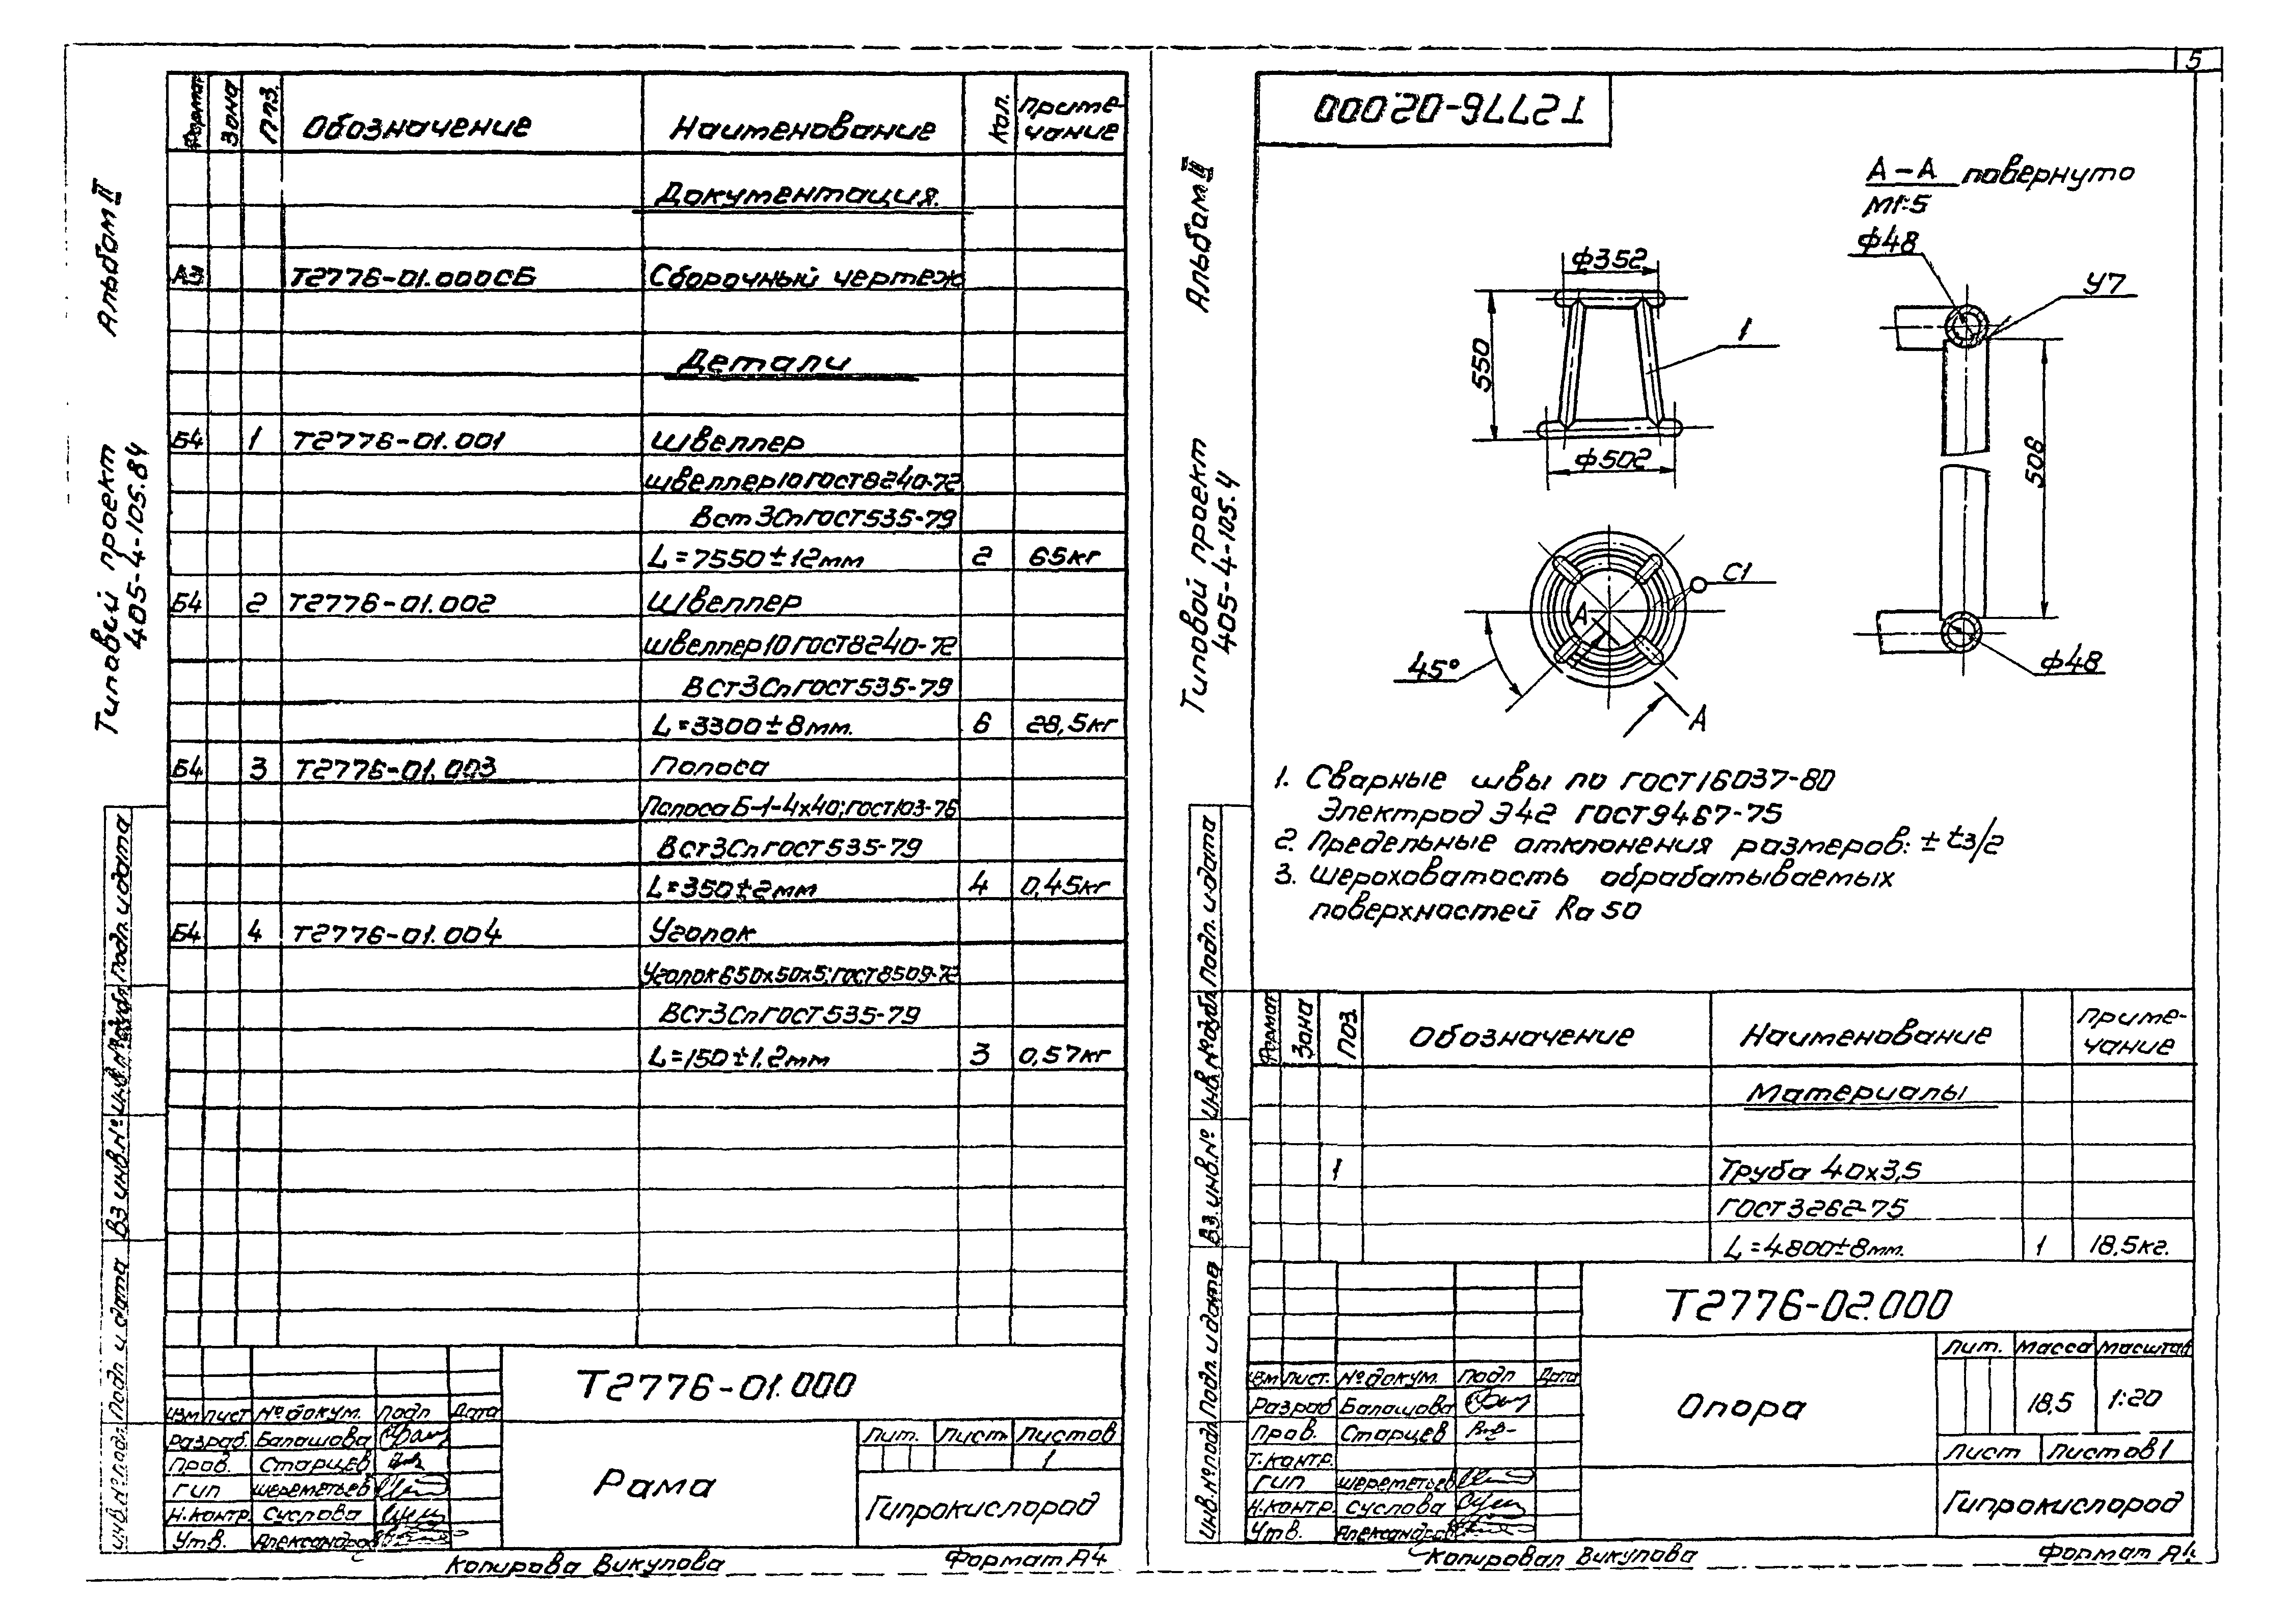 5
Альбом II
Типовой проект
405-4-105.84
Формат Зона Поз. Обозначение Наименование Кол. Приме-
чание
Документация.
А3 Т2776-01.000СБ Сборочный чертеж
Детали
Б4 1 Т2776-01.001 Швеллер
Швеллер 10 ГОСТ 8240-72
Вст 3Сп ГОСТ 535-79
L=7550±12мм 2 65кг
Б4 2 Т2776-01.002 Швеллер
Швеллер 10 ГОСТ 8240-72
ВСт3Сп ГОСТ 535-79
L=3300±8мм. 6 28,5кг
Б4 3 Т2776-01.003 Полоса
Полоса Б-1-4х40; ГОСТ 103-76
ВСт3Сп ГОСТ 535-79
L=350±2мм 4 0,45кг
Б4 4 Т2776-01.004 Уголок
Уголок Б50х50х5; ГОСТ 8509-72
ВСт3Сп ГОСТ 535-79
L=150±1,2мм 3 0,57кг
Инв.№ подл. Подп. и дата Вз. инв.№ Инв.№ дубл. Подп. и дата
Т2776-01.000
Изм Лист № докум. Подп Дата
Разраб. Балашова
Пров. Старцев
ГИП Шереметьев
Н.контр. Суслова
Утв. Александров
Рама
Лит. Лист Листов
1
Гипрокислород
Копирова Викулова Формат А4
Т2776-02.000
Альбом II
Типовой проект
405-4-105.4
А-А повернуто
М1:5
ф48
У7
ф352
550
1
ф502
506
С1
А
45°
ф48
А
1. Сварные швы по ГОСТ 16037-80
Электрод Э42 ГОСТ 9467-75
2. Предельные отклонения размеров: ± t3/2
3. Шероховатость обрабатываемых
поверхностей Ra 50
Формат Зона Поз. Обозначение Наименование Приме-
чание
Материалы
1 Труба 40х3,5
ГОСТ 3262-75
L=4800±8мм. 1 18,5кг.
Инв.№ подл. Подп. и дата Вз. инв.№ Инв.№ дубл. Подп. и дата
Т2776-02.000
Изм Лист. № докум. Подп Дата
Разраб Балашова
Пров. Старцев
Т.контр.
ГИП Шереметьев
Н.контр. Суслова
Утв. Александров
Опора
Лит. Масса Масштаб
18,5 1:20
Лист Листов 1
Гипрокислород
Копировал Викулова Формат А4